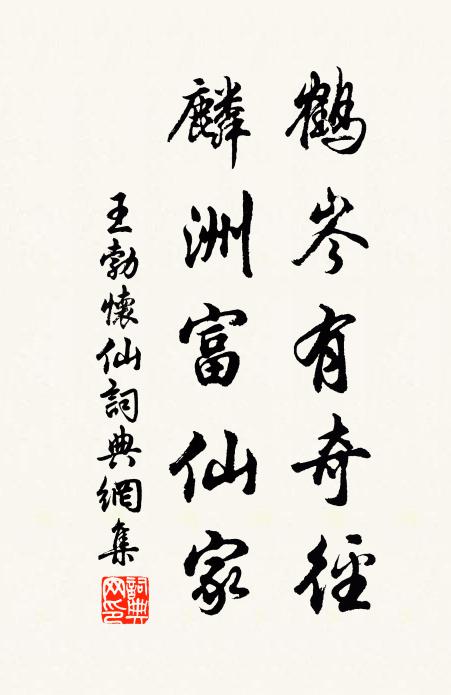 鶴岑有奇徑
麟洲富仙家
王勃懷仙詞典網集
詞典網印